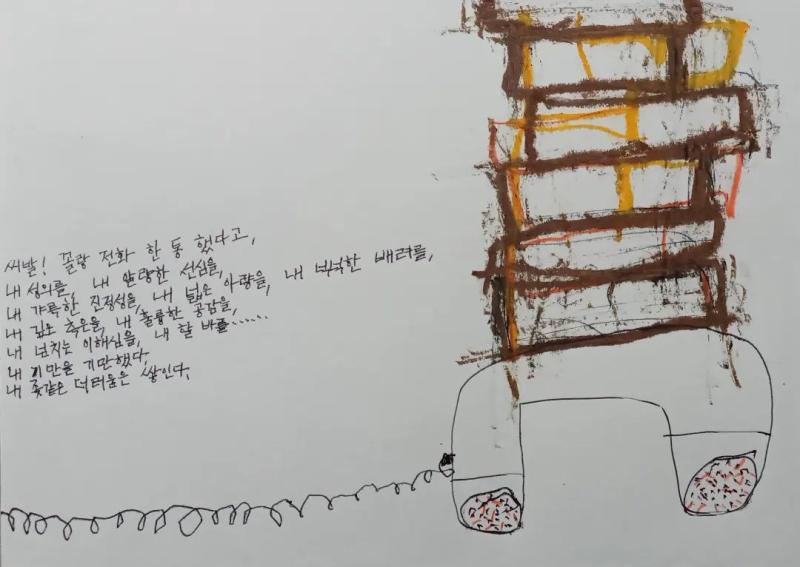 씨발! 꼴랑 전화 한 통 했다고,
내 성의를, 내 알량한 선심을,
내 갸륵한 진정성을, 내 넓은 아량을, 내 넉넉한 배려를,
내 깊은 측은을, 내 훌륭한 공감을,
내 넘치는 이해심을, 내 할 바를......
내 기만을 기만했다
내 좆같은 더러움은 쌓인다,